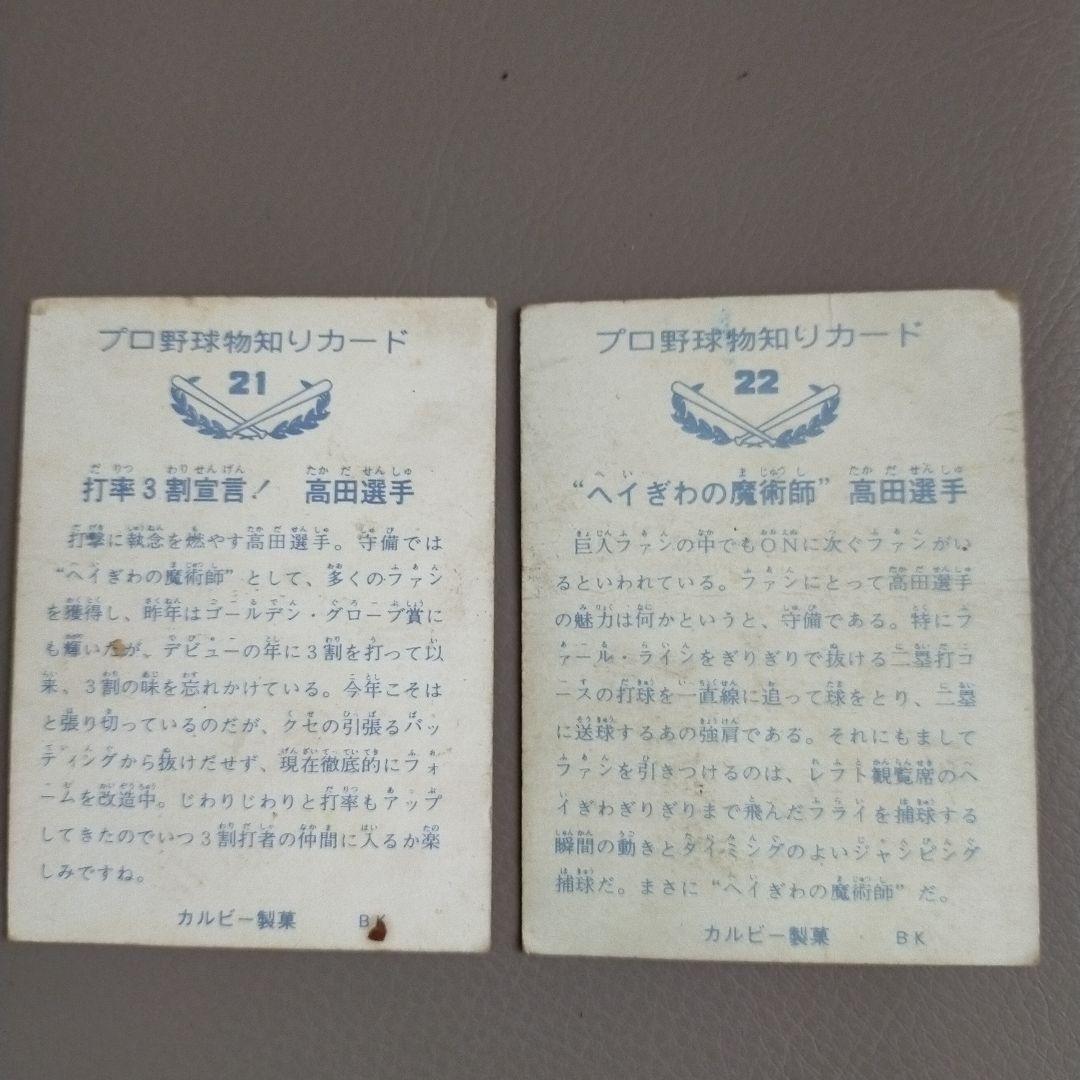 プロ野球物知りカード
21
打率3割宣言! 高田選手
打撃に執念を燃やす高田選手。守備では
“ヘイぎわの魔術師”として、多くのファン
を獲得し、昨年はゴールデン・グローブ賞に
も輝いたが、デビューの年に3割を打って以
来、3割の味を忘れかけている。今年こそは
と張り切っているのだが、クセの引張るバッ
ティングから抜けだせず、現在徹底的にフォ
ームを改造中。じわりじわりと打率もアップ
してきたのでいつ3割打者の仲間に入るか楽
しみですね。
カルビー製菓 BK
プロ野球物知りカード
22
“ヘイぎわの魔術師” 高田選手
巨人ファンの中でもONに次ぐファンがい
るといわれている。ファンにとって高田選手
の魅力は何かというと、守備である。特にフ
ァール・ラインをぎりぎりで抜ける二塁打コ
ースの打球を一直線に追って球をとり、二塁
に送球するあの強肩である。それにもまして
ファンを引きつけるのは、レフト観覧席のヘ
イぎわぎりぎりまで飛んだフライを捕球する
瞬間の動きとタイミングのよいジャンピング
捕球だ。まさに“ヘイぎわの魔術師”だ。
カルビー製菓 BK